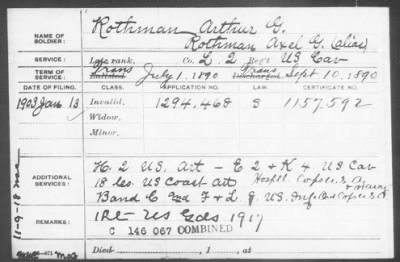 NAME OF SOLDIER: Rothman Arthur G.
Rothman Axel G. (alias)
SERVICE: Late rank, Co. L. 2 Reg't US Cav
TERM OF SERVICE: Enlisted Trans July 1, 1890 Discharged Trans Sept 10, 1890
DATE OF FILING. CLASS. APPLICATION NO. CERTIFICATE NO.
1903 Jan 13 Invalid, 1294.468 1157.592
Widow,
Minor,
ADDITIONAL SERVICES: H. 2 US. Art - E 2 + K 4 US Cav
18 Co. US Coast Art Hosptl. Corps U.S.A.
Band C and F + L 9 US. Inf and Corps U.S.
REMARKS: US 1917
C 146 067 COMBINED
Died , 1 , at
11-9-18